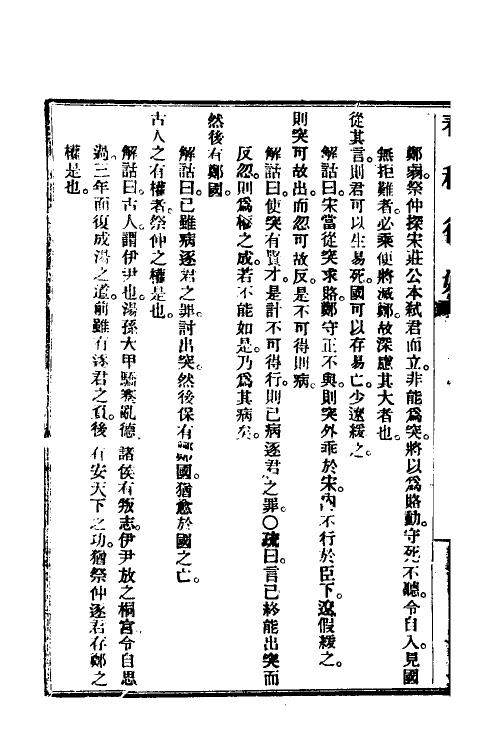 鄭弱。祭仲探宋莊公本弒君而立。非能爲突將以爲賂動。守死不聽。令自入見國
無拒難者。必乘便將滅鄭。故深慮其大者也。
從其言。則君可以生易死。國可以存易亡。少遼緩之。
解詁曰。宋當從突求賂。鄭守正不與。則突外乖於宋。內不行於臣下。遼假緩之。
則突可故出。而忽可故反。是不可得則病。
解詁曰。使突有賢才。是計不可得行。則已病逐君之罪。○疏曰。言已終能出突而
反忽。則爲權之成。若不能如是。乃爲其病矣。
然後有鄭國。
解詁曰。已雖病逐君之罪。討出突。然後保有鄭國。猶愈於國之亡。
古人之有權者。祭仲之權是也。
解詁曰。古人。謂伊尹也。湯孫大甲驕蹇亂德。諸侯有叛志。伊尹放之桐宮。令自思
過。三年而復成湯之道。前雖有逐君之負。後有安天下之功。猶祭仲逐君存鄭之
權是也。